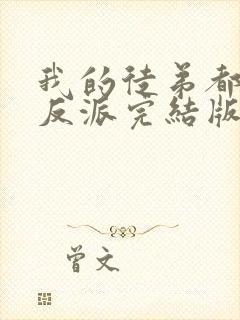 我的徒弟都
反派完結版
曾文